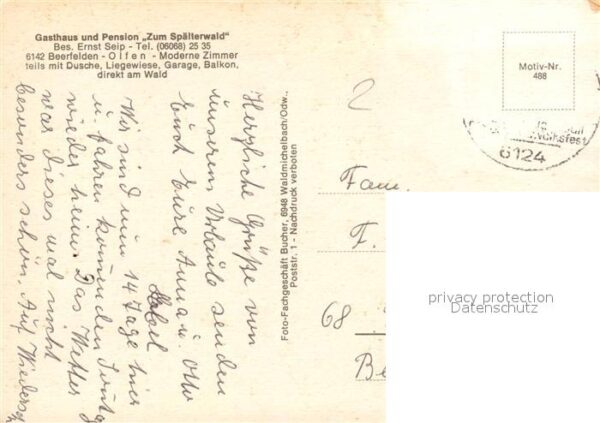 Gasthaus und Pension „Zum Spälterwald"
Bes. Ernst Seip - Tel. (06068) 25 35
6142 Beerfelden - Olfen - Moderne Zimmer
teils mit Dusche, Liegewiese, Garage, Balkon,
direkt am Wald
Herzliche Grüße von
unserem Urlaub senden
Euch Eure Anna u. Otto
Wir sind nun 14 Tage hier
u. fahren kommenden Sonntg
wieder heim. Das Wetter
war dieses mal nicht
besonders schön. Auf Wiederseh
Foto-Fachgeschäft Bucher, 6948 Waldmichelbach/Odw.,
Poststr. 1 - Nachdruck verboten
2
Motiv-Nr.
488
Volksfest
6124
Fam.
F.
68
Be
privacy protection
Datenschutz